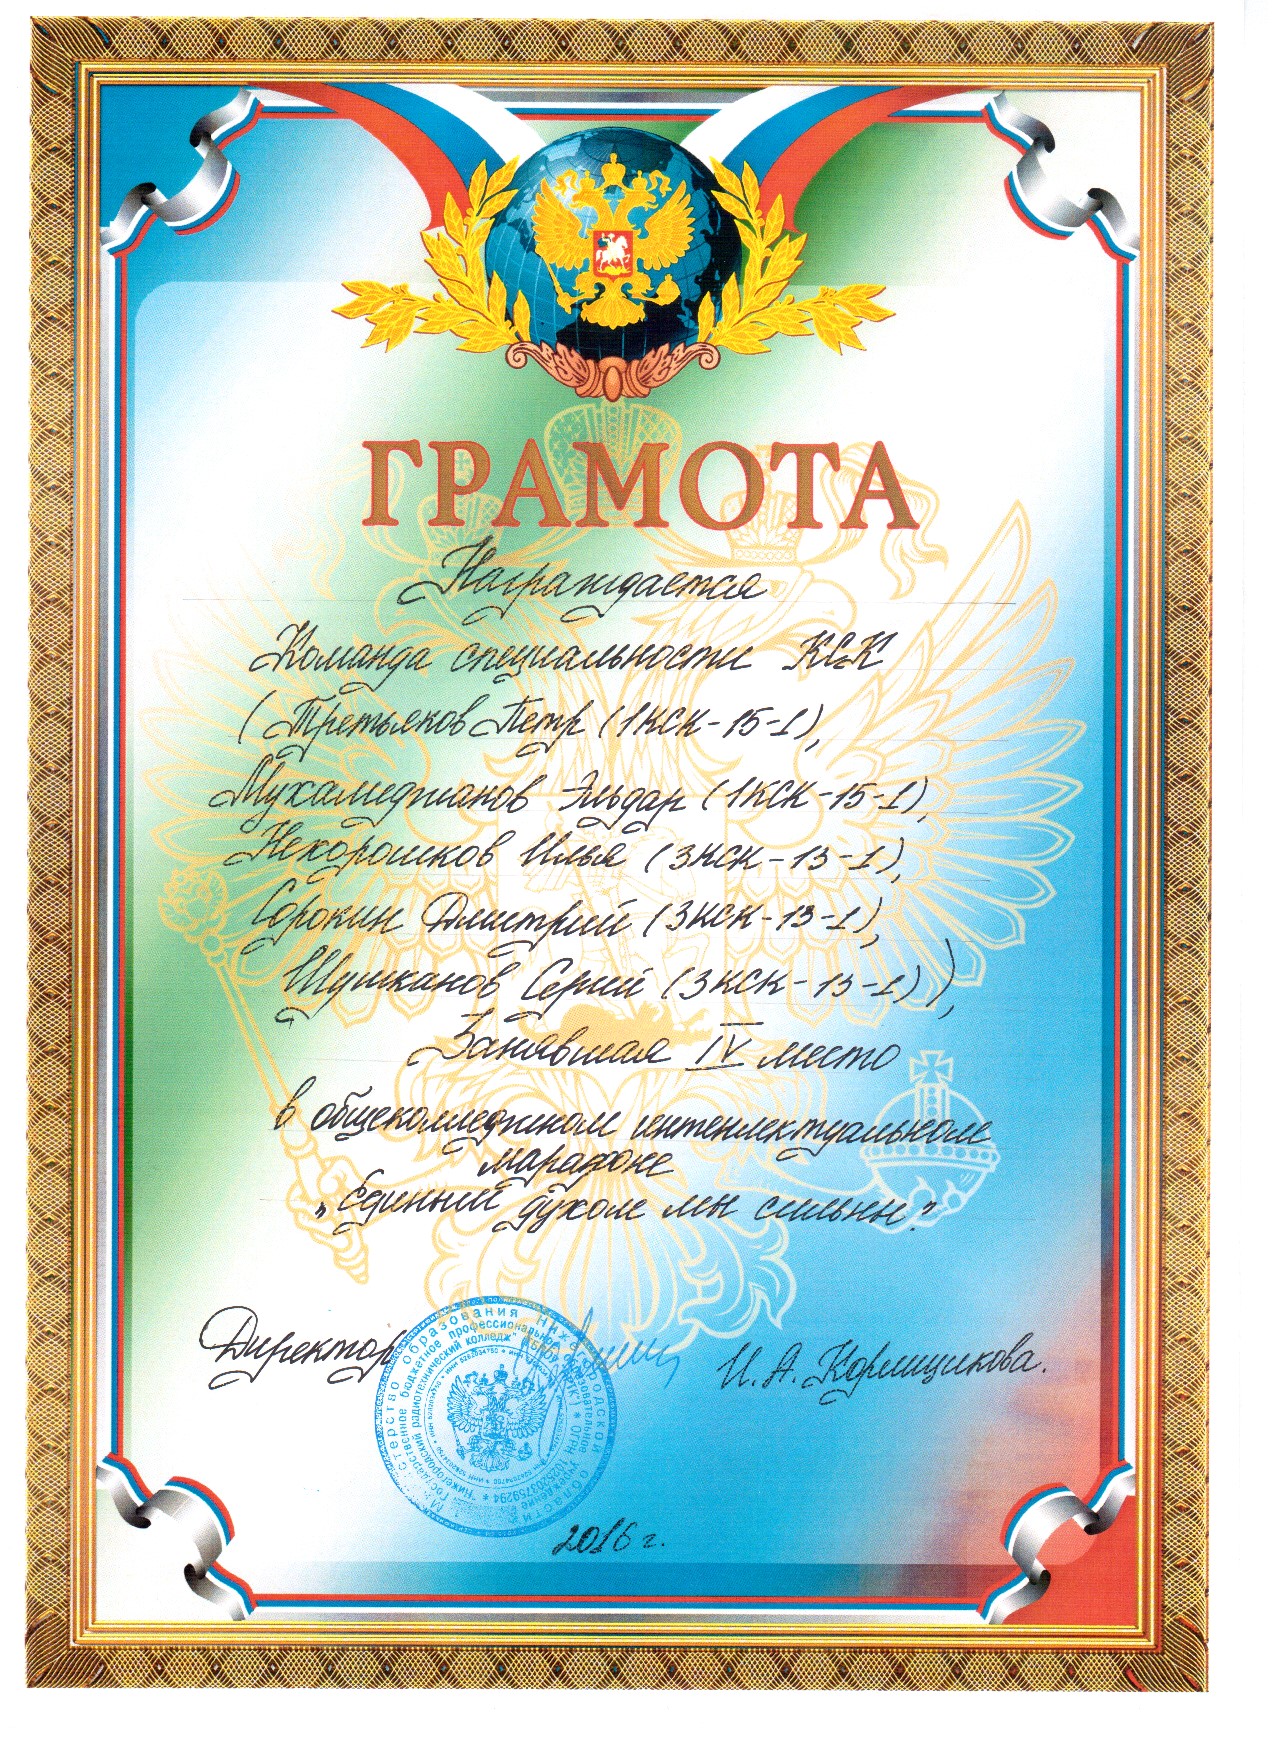 ГРАМОТА
Награждается
Команда специальности КСК
(Третьяков Петр (1КСК-15-1),
Мухамеджанов Эльдар (1КСК-15-1),
Нехорошков Илья (3КСК-13-1),
Сорокин Дмитрий (3КСК-13-1),
Шушканов Сергий (3КСК-13-1)),
Занявшая IV место
в общеколледжном интеллектуальном
марафоне
„Единым духом мы сильны”.
Директор И. А. Кормщикова.
Министерство образования Нижегородской области
Государственное бюджетное профессиональное образовательное учреждение
"Нижегородский радиотехнический колледж" * ОГРН 1025203759294 *
2016 г.